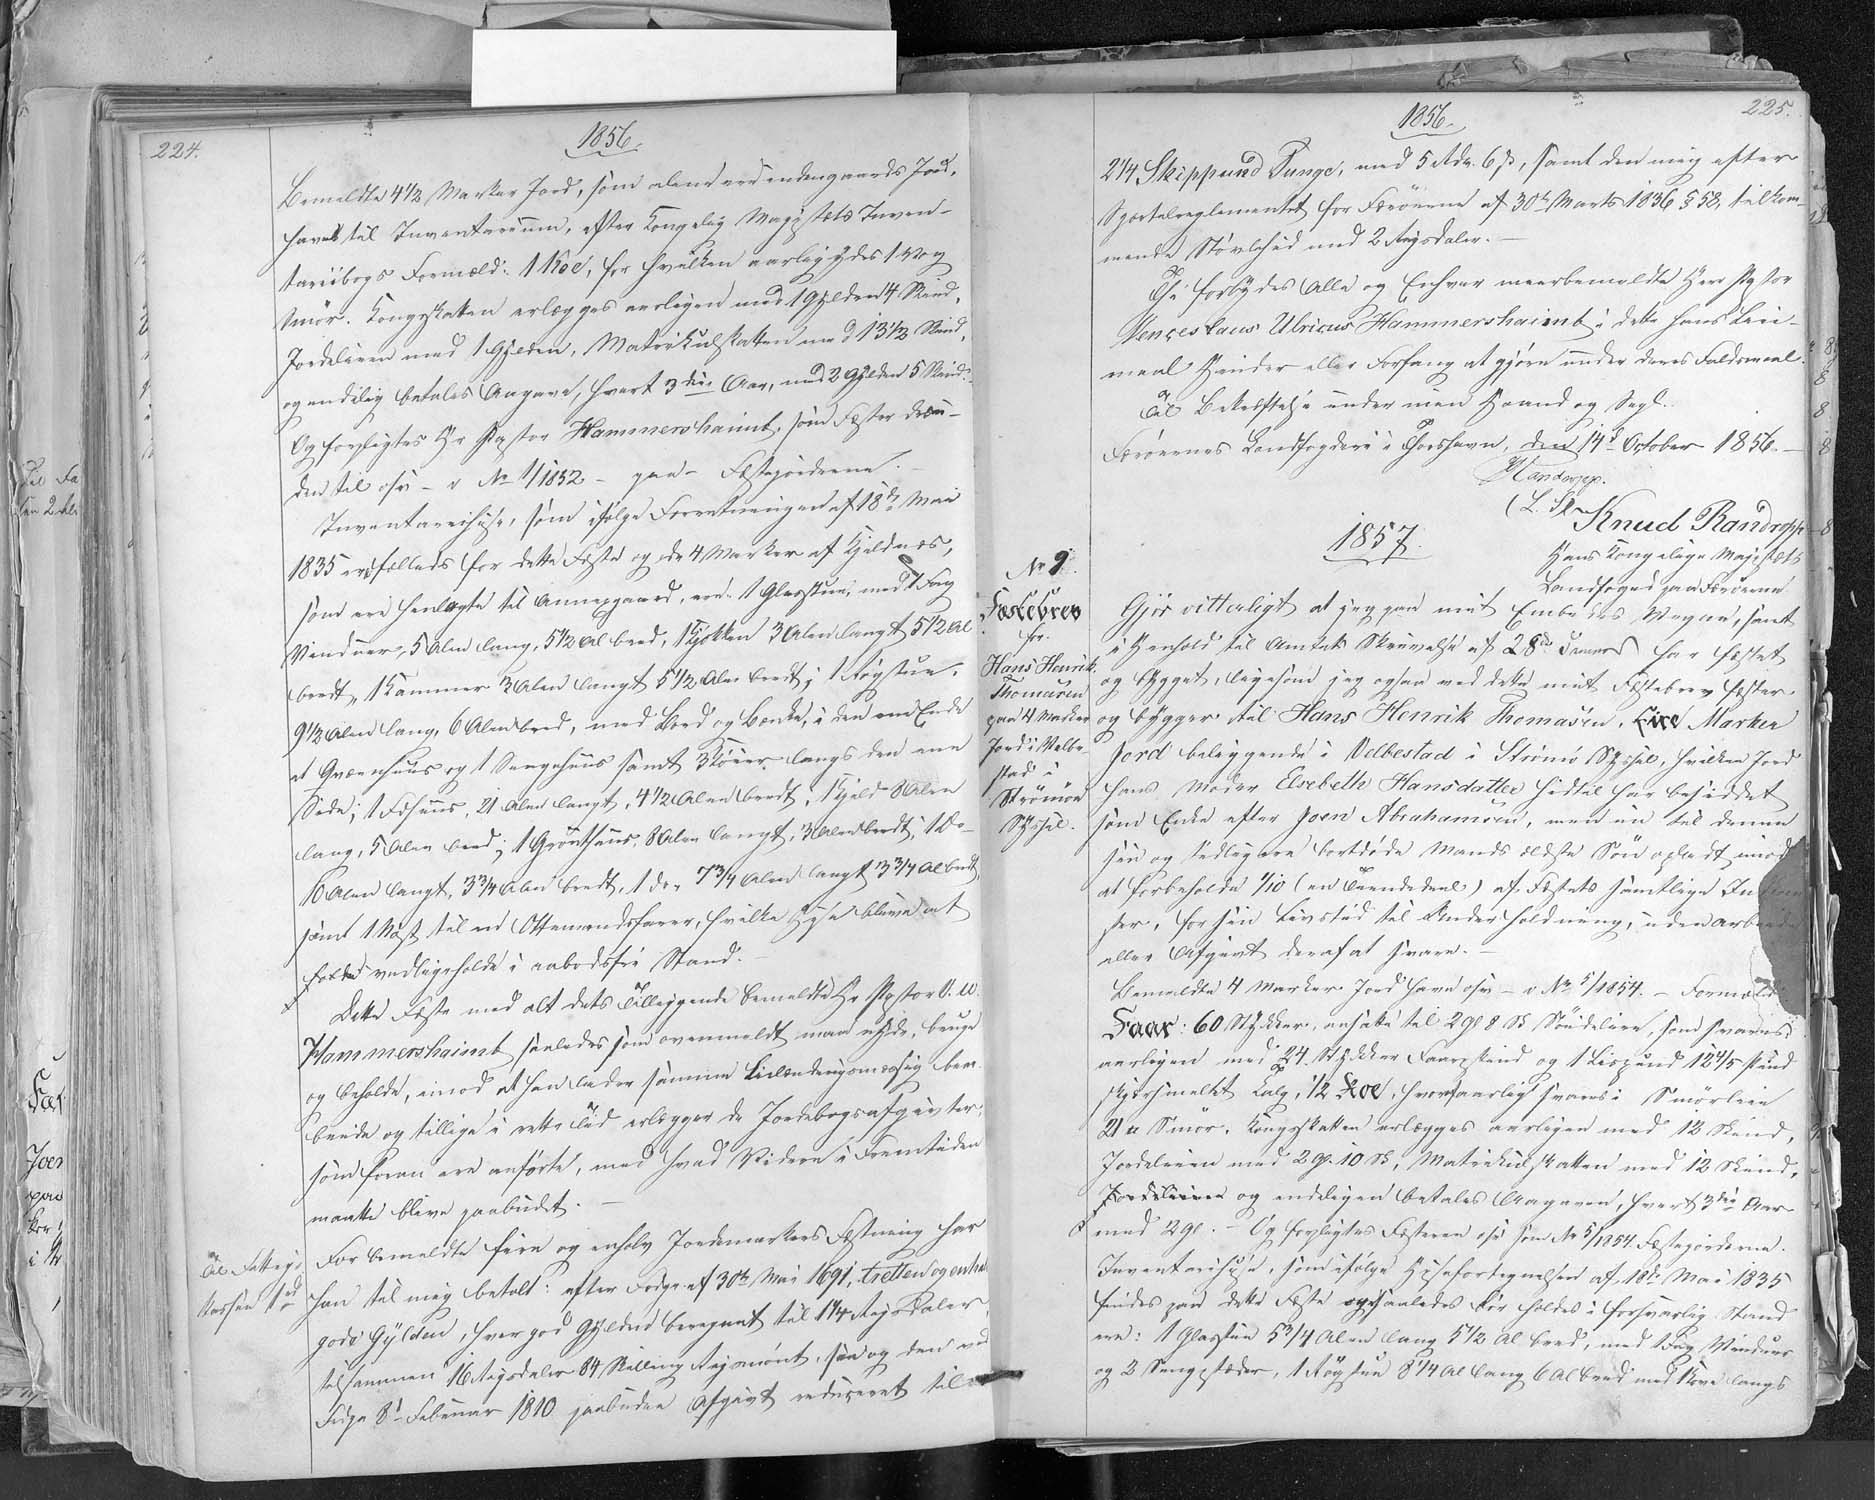 224.
1856.
Bemeldte 4 1/2 Marker Jord, som alene ere indengaards Jord,
have til Inventarium, efter Kongelig Majestæts Inven-
tariibogs Formæld: 1 Koe, for hvilken aarlig ydes 1 Vog
Smör. Kongsskatten erlægges aarligen med 1 Gylden 4 Skind,
Jordeleien med 1 Gylden, Matrikulskatten med 13 1/2 Skind,
og endelig betales Aagave, hvert 3die Aar, med 2 Gylden 5 Skind.
Og forpligtes Hr Pastor Hammershaimb, som Fæster desu-
den til osv - v No 1/1852 - paa - Fæstejorderne.
Inventariihuse, som ifølge Forretningen af 18de Mai
1835 ere fælleds for dette Fæste og de 4 Marker af Kjeldnæs,
som ere henlagte til Annexgaard, ere: 1 Glasstue, med 1 Fag
Vinduer, 5 Alen lang, 5 1/2 Al bred, 1 Kjökken 3 Alen langt 5 1/2 Al
bredt, 1 Kammer 3 Alen langt 5 1/2 Alen bredt; 1 Røgstue,
9 1/2 Alen lang, 6 Alen bred, med Bord og Bænke, i den ene Ende
et Qværnhuus og 1 Sengehuus samt 3 Köier langs den ene
Side; 1 Fæhuus, 21 Alen langt, 4 1/2 Alen bredt; 1 Hjeld 8 Alen
lang, 5 Alen bred; 1 Grönthuus, 8 Alen langt, 3 Alen bredt; 1 Do
10 Alen langt, 3 3/4 Alen bredt, 1 do 7 3/4 Alen langt 3 3/4 Al bredt,
samt 1 Nøst til en Ottemandsfarer, hvilke Huse bliver at
vedligeholde i aabodsfri Stand.
Dette Fæste med alt dets Tilliggende bemeldte Hr Pastor V. U.
Hammershaimb saaledes som ovenmeldt maa nyde, bruge
og beholde, imod at han lader samme Leilændingsmæssig bear-
beide og tillige i rette Tid erlægger de Jordebogsafgivter,
som foran ere anførte, med hvad Videre i Fremtiden
maatte blive paabudet.
Til Fattigs
kassen 1 rd
For bemeldte fire og enhalv Jordemarkers Fæstning har
han til mig betalt: efter Fodgn af 30te Mai 1691, tretten og enhalv
gode Gylden, hver god Gylden beregnet til 1 1/4 Rigsdaler
tilsammen 16 Rigsdaler 84 Skilling Rigsmønt, saa og den ved
Fdgn 8de Februar 1810 paabudne Afgivt reduceret til
225.
1856.
2 1/4 Skippund Tunge, med 5 Rdr. 6 ß, samt den mig efter
Sportelreglementet for Færöerne af 30te Marts 1836 § 52, tilkom-
mende Støvlehud med 2 Rigsdaler.
Thi forbydes Alle og Enhver meerbemeldte Herr Pastor
Venceslaus Ulricus Hammershaimb i dette hans Leie-
maal Hinder eller Forfang at gjøre under deres Faldsmaal.
Til Bekræftelse under min Haand og Segl.
Færøernes Landfogderi i Thorshavn, den 14de October 1856.
Randropp.
(L. S.)
1857.
Knud Randropp
Hans Kongelige Majestæts
Landfoged paa Færøerne
No 9.
Fæstebrev
for
Hans Henrik
Thomasen
paa 4 Marker
Jord i Velbe-
stad i
Strömöe
Syssel.
Gjör vitterligt at jeg paa mit Embedes Vegne, samt
i Henhold til Amtets Skrivelse af 28de Januar har fæstet
og bygget, ligesom jeg ogsaa ved dette mit Fæstebrev fæster
og bygger til Hans Henrik Thomasen, Fire Marker
Jord beliggende i Velbestad i Strömö Syssel, hvilken Jord
hans Moder Elsebeth Hansdatter hidtil har besiddet
som Enke efter Joen Abrahamsen, men nu til denne
sin og tidligere bortdøde Mands ældste Søn opladt imod
at forbeholde 1/10 (en Tiendedeel) af Fæstets samtlige
ter, for sin Livstid til Underholdning, uden
eller Afgivt deraf at svare.
Bemeldte 4 Marker Jord have osv - v No 5/1854. - Formæld:
Faar: 60 Stykker, ansatte til 2 Gl 8 Sk Söudeleie, som svares
aarligen med 24 Stykker Faareskind og 1 Lispund 12 4/5 Pund
skjærsmeltet Talg, 1/2 Koe, hvoraf aarlig svares i Smörleie
21 tt Smör. Kongsskatten erlægges aarligen med 12 Skind,
Jordeleien med 2 Gl. 10 Sk, Matrikulskatten med 12 Skind,
Jordeleien og endeligen betales Aagaven, hvert 3die Aar
med 2 Gl. - Og forpligtes Fæsteren osv som No 5/1854. Fæstejorderne.
Inventariihuse, som ifølge Husefortegnelsen af 18de Mai 1835
findes paa dette Fæste og saaledes bör holdes i forsvarlig Stand
ere: 1 Glasstue 5 3/4 Alen lang 5 1/2 Al bred, med 1 Fag Vinduer
og 2 Sengesteder, 1 Røgstue 8 1/4 Al lang 6 Al bred med langs